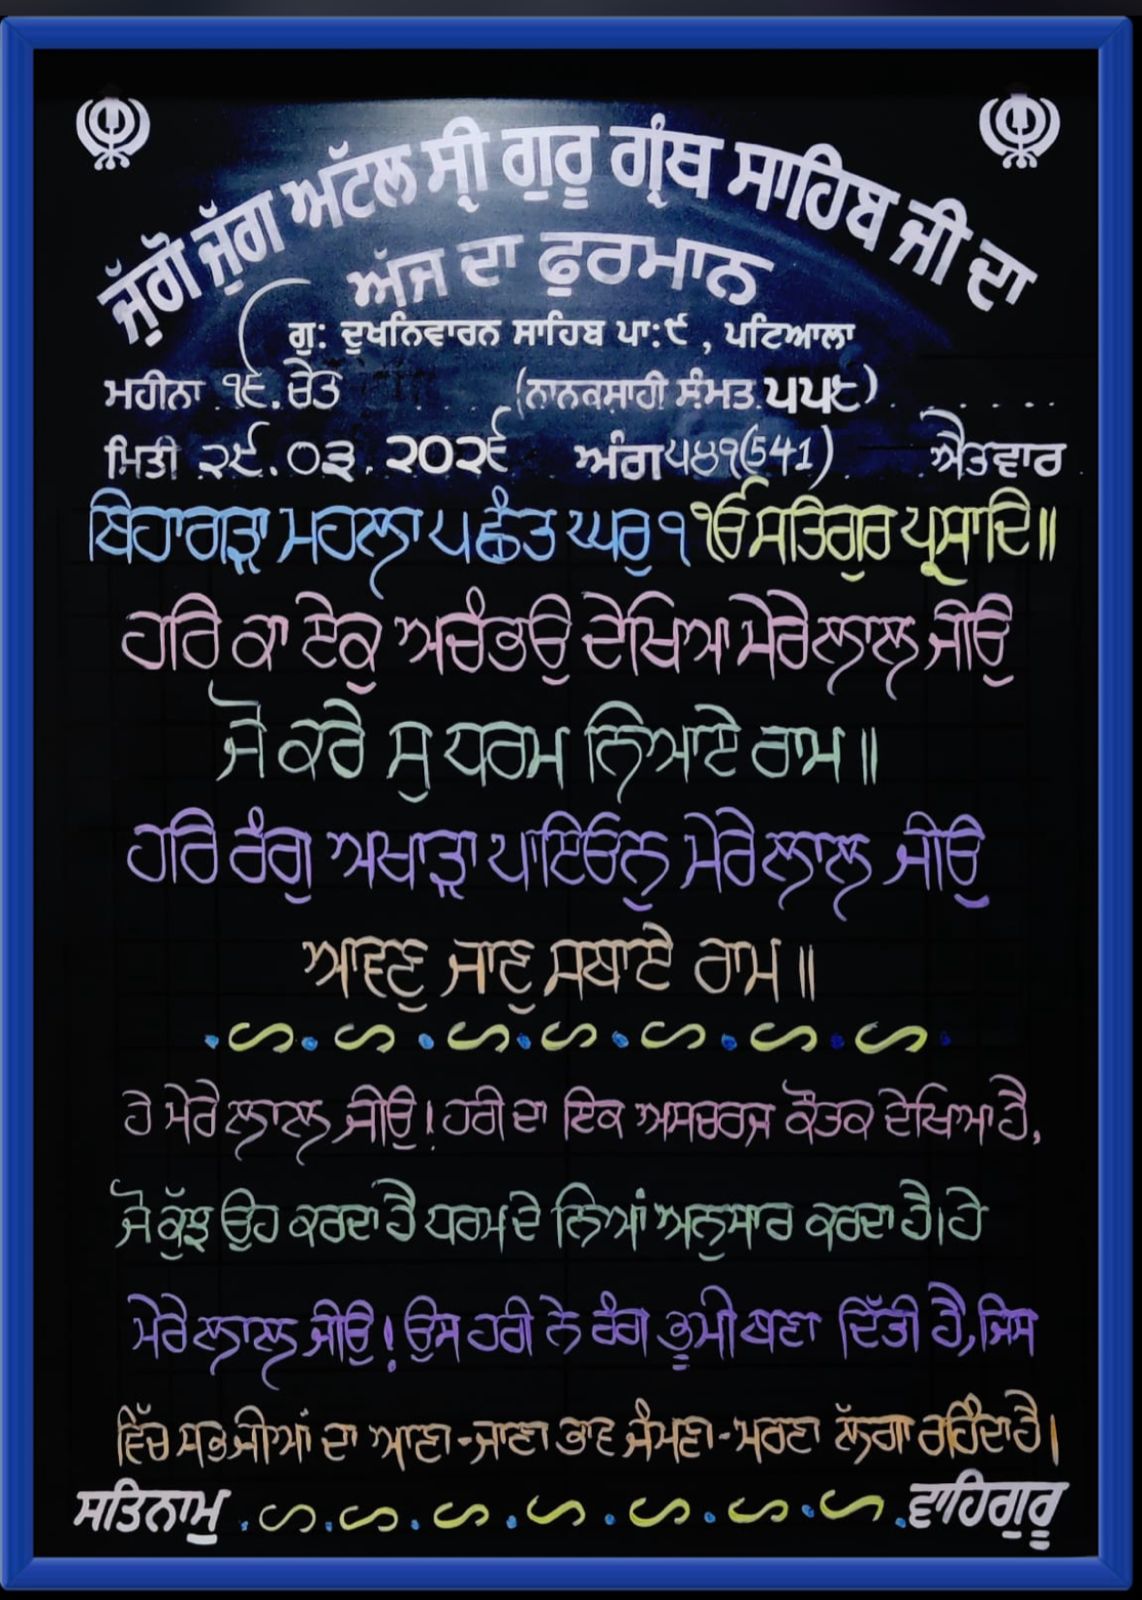 ਜੁੱਗੋ ਜੁੱਗ ਅਟੱਲ ਸ੍ਰੀ ਗੁਰੂ ਗ੍ਰੰਥ ਸਾਹਿਬ ਜੀ ਦਾ
ਅੱਜ ਦਾ ਫੁਰਮਾਨ
ਗੁ: ਦੁਖਨਿਵਾਰਨ ਸਾਹਿਬ ਪਾ:੯, ਪਟਿਆਲਾ
ਮਹੀਨਾ ੧੬.ਚੇਤ (ਨਾਨਕਸ਼ਾਹੀ ਸੰਮਤ ੫੫੮)
ਮਿਤੀ ੨੯.੦੩.੨੦੨੬ ਅੰਗ ੫੪੧(541) ਐਤਵਾਰ
ਬਿਹਾਗੜਾ ਮਹਲਾ ੫ ਛੰਤ ਘਰੁ ੧ ੴ ਸਤਿਗੁਰ ਪ੍ਰਸਾਦਿ॥
ਹਰਿ ਕਾ ਏਕੁ ਅਚੰਭਉ ਦੇਖਿਆ ਮੇਰੇ ਲਾਲ ਜੀਉ
ਜੋ ਕਰੇ ਸੁ ਧਰਮ ਨਿਆਏ ਰਾਮ॥
ਹਰਿ ਰੰਗੁ ਅਖਾੜਾ ਪਾਇਓਨੁ ਮੇਰੇ ਲਾਲ ਜੀਉ
ਆਵਣੁ ਜਾਣੁ ਸਬਾਏ ਰਾਮ॥
ਹੇ ਮੇਰੇ ਲਾਲ ਜੀਉ! ਹਰੀ ਦਾ ਇਕ ਅਸਚਰਜ ਕੌਤਕ ਦੇਖਿਆ ਹੈ,
ਜੋ ਕੁੱਝ ਉਹ ਕਰਦਾ ਹੈ ਧਰਮ ਦੇ ਨਿਆਂ ਅਨੁਸਾਰ ਕਰਦਾ ਹੈ। ਹੇ
ਮੇਰੇ ਲਾਲ ਜੀਉ! ਉਸ ਹਰੀ ਨੇ ਰੰਗ ਭੂਮੀ ਬਣਾ ਦਿੱਤੀ ਹੈ, ਜਿਸ
ਵਿੱਚ ਸਭ ਜੀਆਂ ਦਾ ਆਣਾ-ਜਾਣਾ ਭਾਵ ਜੰਮਣਾ-ਮਰਣਾ ਲੱਗਾ ਰਹਿੰਦਾ ਹੈ।
ਸਤਿਨਾਮੁ ਵਾਹਿਗੁਰੂ